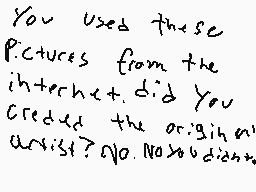 You used these
Pictures from the
internet. did you
creded the origin
artist? No. No you didn't